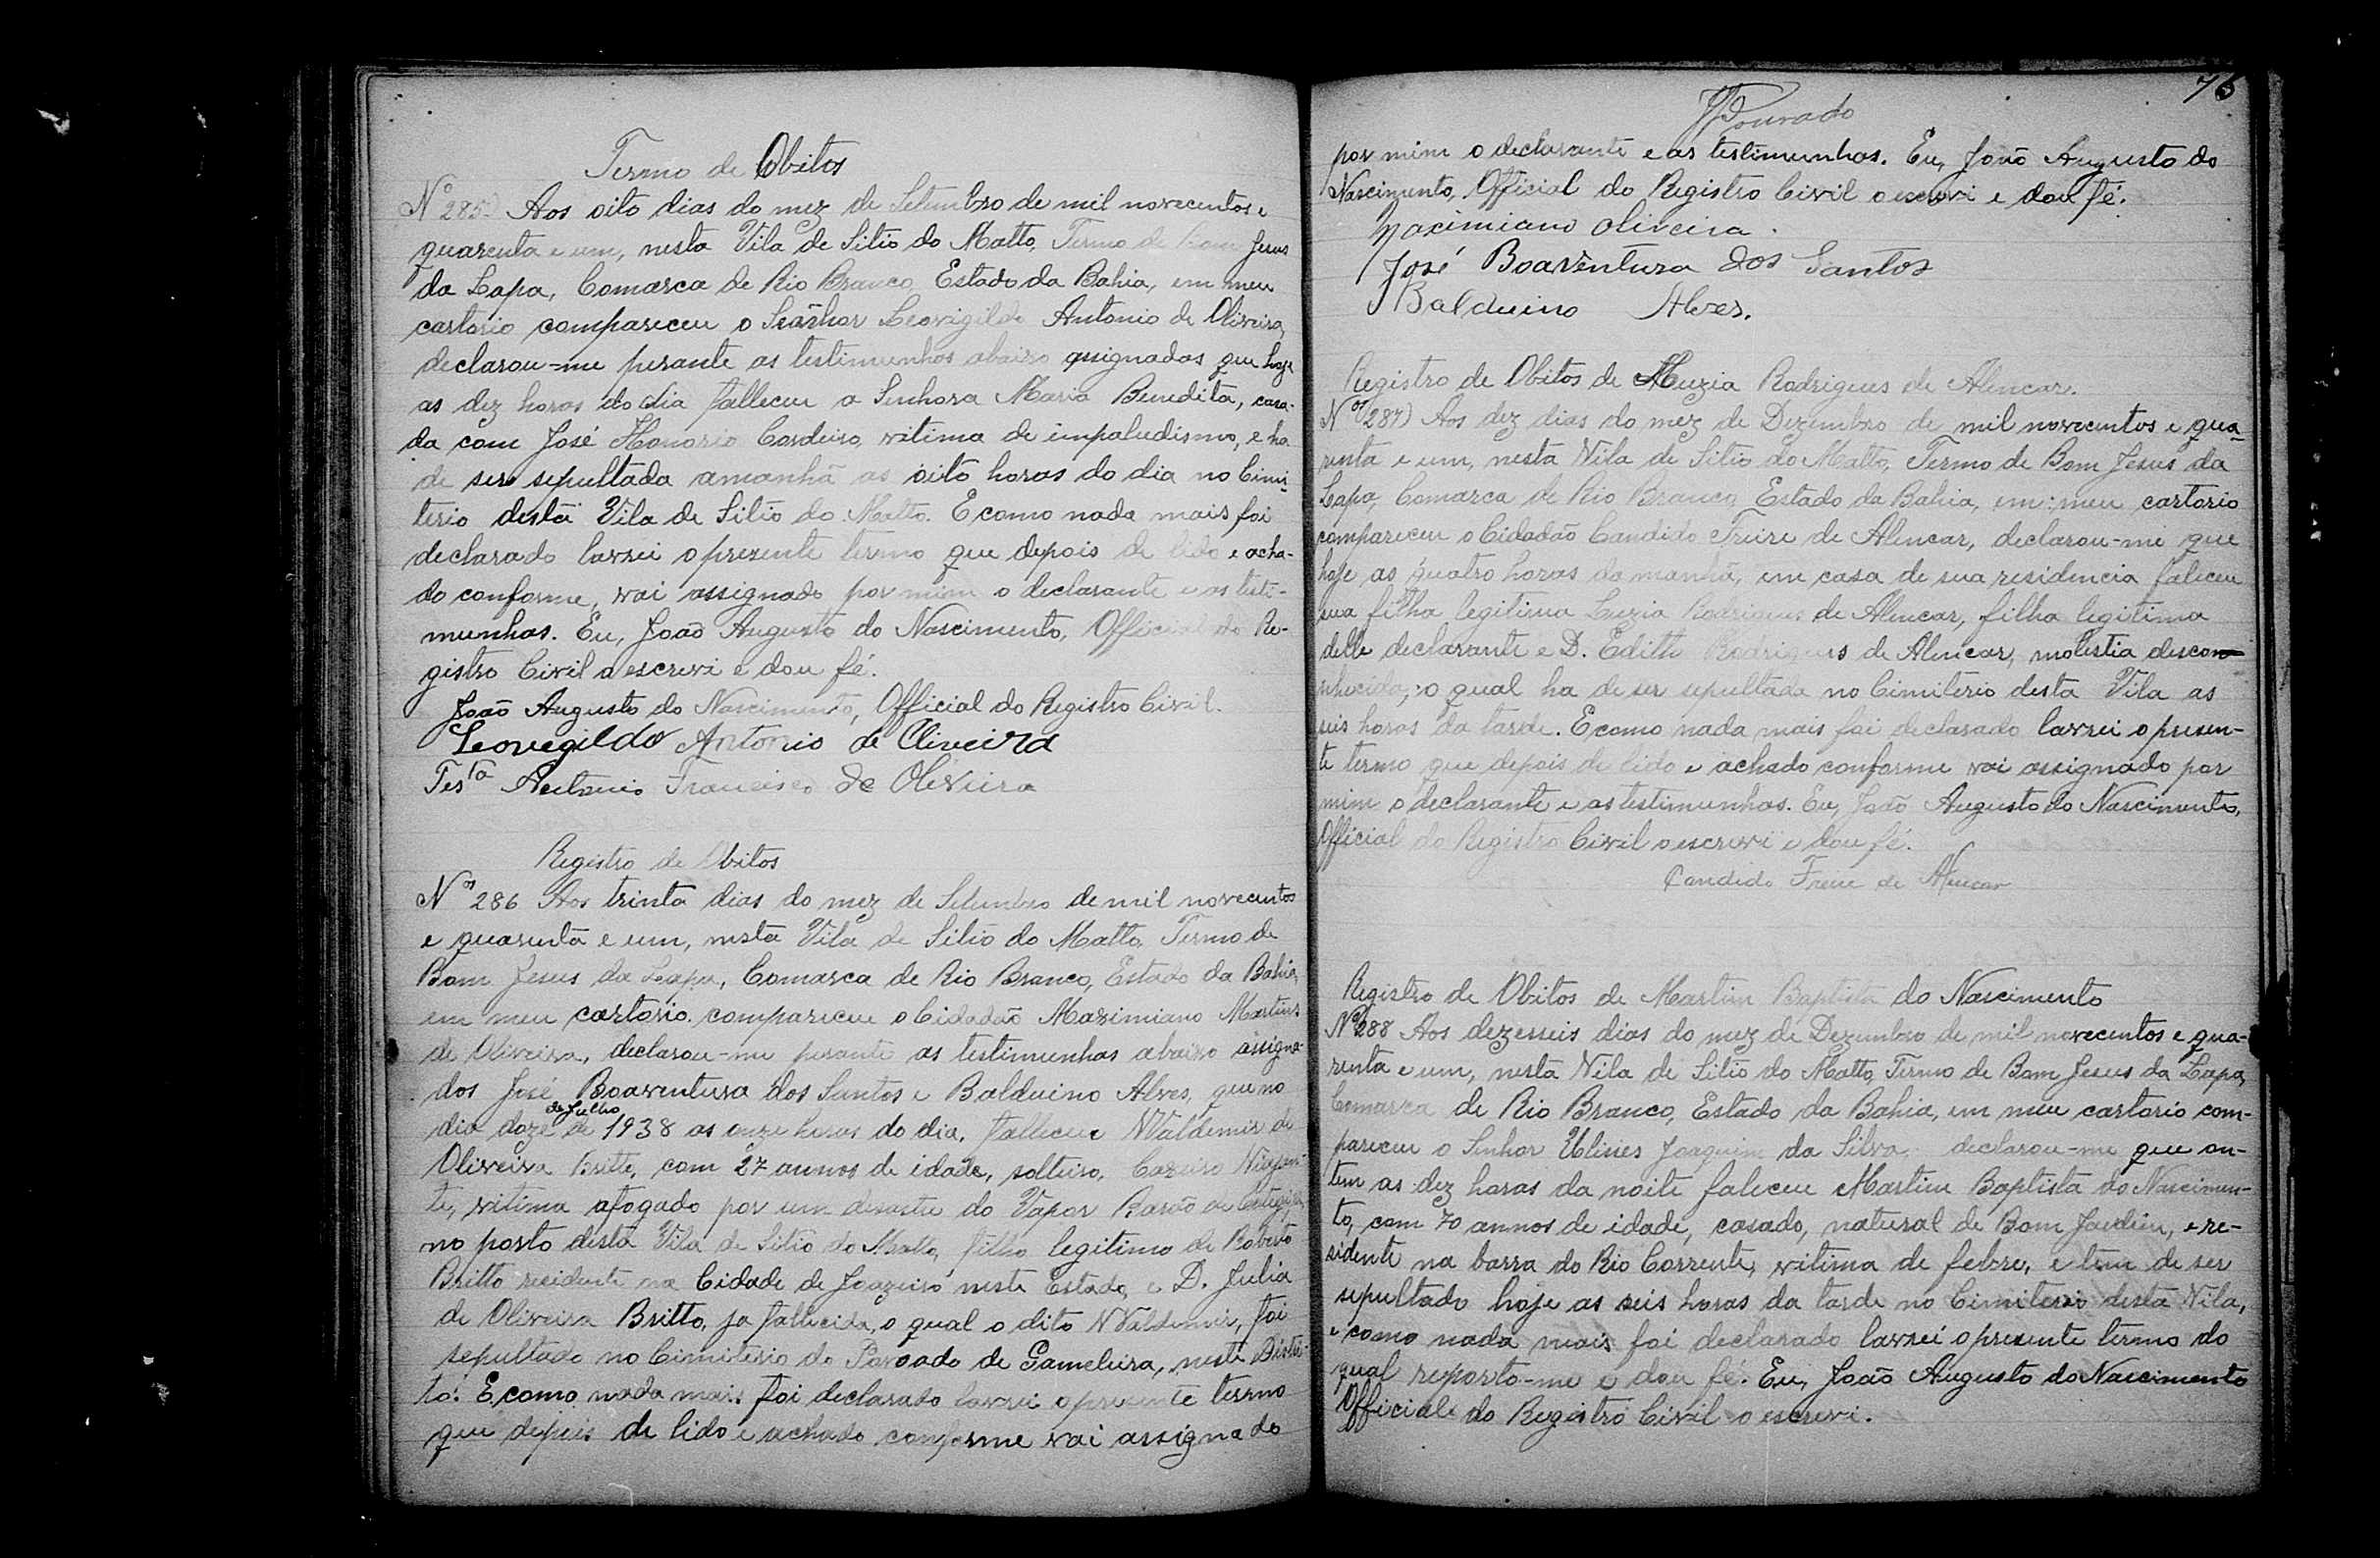 Termo de Obitos
Nº 285) Aos oito dias do mez de Setembro de mil novecentos e
quarenta e um, nesta Vila de Sitio do Matto, Termo de Bom Jesus
da Lapa, Comarca de Rio Branco, Estado da Bahia, em meu
cartorio compareceu o Senhor Leovigildo Antonio de Oliveira,
declarou-me perante as testimunhas abaixo assignadas que hoje
as dez horas do dia falleceu a Senhora Maria Benedita, casa-
da com José Honorio Cordeiro, vitima de impaludismo, e ha
de ser sepultada amanhã as oito horas do dia no Cimi-
terio desta Vila de Sitio do Matto. E como nada mais foi
declarado lavrei o prezente termo que depois de lido e acha-
do conforme, vai assignado por mim o declarante e as testi-
munhas. Eu, João Augusto do Nascimento, Official do Re-
gistro Civil o escrevi e dou fé.
João Augusto do Nascimento, Official do Registro Civil.
Leovegildo Antonio de Oliveira
Testa Antonio Francisco de Oliveira
Registro de Obitos
Nos 286 Aos trinta dias do mez de Setembro de mil novecentos
e quarenta e um, nesta Vila de Sitio do Matto, Termo de
Bom Jesus da Lapa, Comarca de Rio Branco, Estado da Bahia,
em meu cartorio compareceu o Cidadão Maximiano Martins
de Oliveira, declarou-me perante as testimunhas abaixo assigna-
dos José Boaventura dos Santos e Balduino Alves, que no
dia doze de Julho de 1938 as onze horas do dia, falleceu Waldemir de
Oliveira Britto, com 27 annos de idade, solteiro,
te, vitima afogado por um desastre do Vapor Barão de Cotegipe,
no porto desta Vila de Sitio do Matto, filho legitimo de
Britto residente na Cidade de Joazeiro neste Estado, e D. Julia
de Oliveira Britto, ja fallecida, o qual o dito Waldemir, foi
sepultado no Cimiterio do Povoado de Gameleira, neste Distri-
to. E como nada mais foi declarado lavrei o presente termo
que depois de lido e achado conforme vai assignado
76
JDourado
por mim o declarante e as testimunhas. Eu, João Augusto do
Nascimento, Official do Registro Civil o escrevi e dou fé.
Maximiano Oliveira.
José Boaventura dos Santos
Balduino Alves.
Registro de Obitos de Luzia Rodrigues de Alencar.
Nos 287) Aos dez dias do mez de Dezembro de mil novecentos e qua-
renta e um, nesta Vila de Sitio do Matto, Termo de Bom Jesus da
Lapa, Comarca de Rio Branco, Estado da Bahia, em meu cartorio
compareceu o Cidadão Candido Freire de Alencar, declarou-me que
hoje as quatro horas da manhã, em casa de sua residencia faleceu
sua filha legitima Luzia Rodrigues de Alencar, filha legitima
delle declarante e D. Edith Rodrigues de Alencar, molestia descon-
nhecida, o qual ha de ser sepultada no Cimiterio desta Vila as
seis horas da tarde. E como nada mais foi declarado lavrei o presen-
te termo que depois de lido e achado conforme vai assignado por
mim o declarante e as testimunhas. Eu, João Augusto do Nascimento,
Official do Registro Civil o escrevi e dou fé.
Candido Freire de Alencar
Registro de Obitos de Martim Baptista do Nascimento
Nº 288 Aos dezesseis dias do mez de Dezembro de mil novecentos e qua-
renta e um, nesta Vila de Sitio do Matto, Termo de Bom Jesus da Lapa,
Comarca de Rio Branco, Estado da Bahia, em meu cartorio com-
pareceu o Senhor Ulisies Joaquim da Silva declarou-me que on-
tem as dez horas da noite faleceu Martim Baptista do Nascimen-
to, com 70 annos de idade, casado, natural de Bom Jardim, e re-
sidente na barra do Rio Corrente, vitima de febre, e tem de ser
sepultado hoje as seis horas da tarde no Cimiterio desta Vila,
e como nada mais foi declarado lavrei o presente termo do
qual reporto-me e dou fé. Eu, João Augusto do Nascimento
Official do Registro Civil o escrevi.